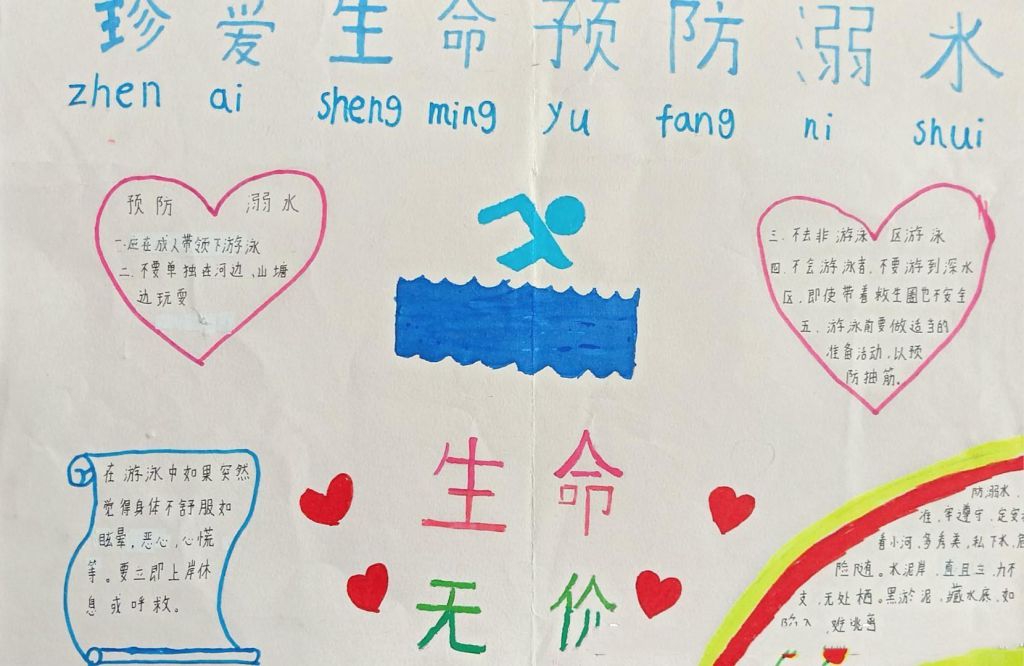 珍爱生命预防溺水
zhen ai sheng ming yu fang ni shui
预防 溺水
一.应在成人带领下游泳
二.不要单独在河边、山塘
边玩耍
三.不去非游泳区游泳
四.不会游泳者,不要游到深水
区,即使带着救生圈也不安全
五.游泳前要做适当的
准备活动,以预
防抽筋。
生命
无价
在游泳中如果突然
觉得身体不舒服如
眩晕,恶心,心慌
等。要立即上岸休
息或呼救。
防溺水,
准,牢遵守,定安
看小河,多秀美,私下水,危
险随。水泥岸,直且立,力不
支,无处栖。黑淤泥,藏水底,如
陷入,难逃离